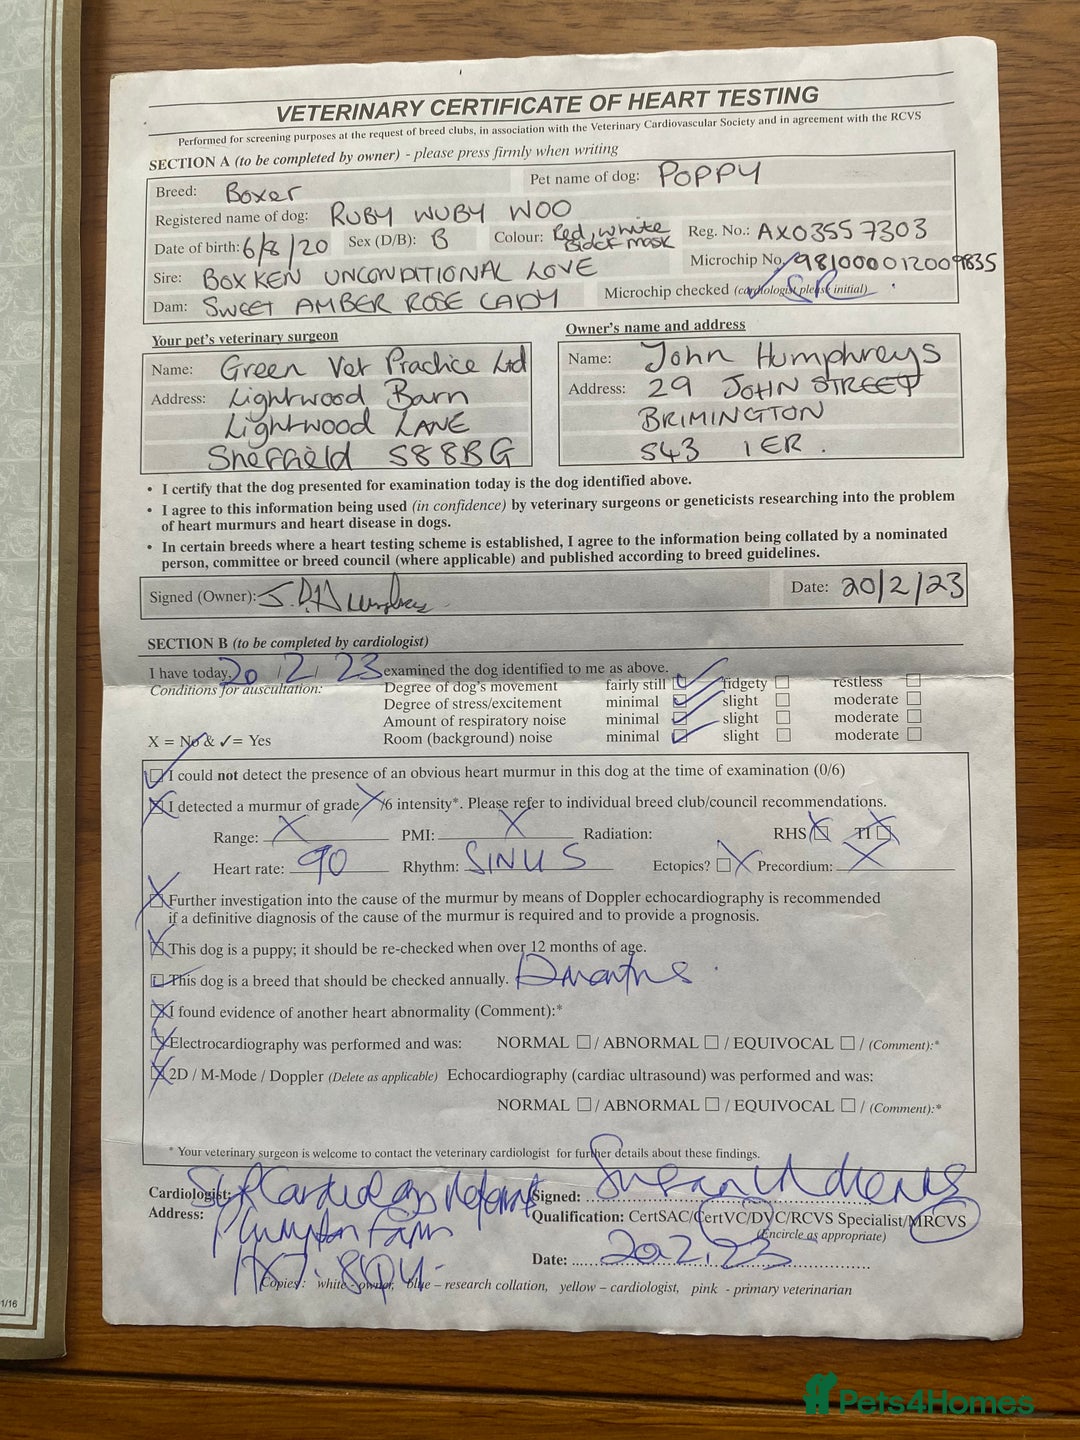 VETERINARY CERTIFICATE OF HEART TESTING
Performed for screening purposes at the request of breed clubs, in association with the Veterinary Cardiovascular Society and in agreement with the RCVS
SECTION A (to be completed by owner) - please press firmly when writing
Breed: Boxer Pet name of dog: POPPY
Registered name of dog: RUBY WUBY WOO
Date of birth: 6/8/20 Sex (D/B): B Colour: Red, white Black mask Reg. No.: AX03557303
Sire: BOXKEN UNCONDITIONAL LOVE Microchip No. 981000012009835
Dam: SWEET AMBER ROSE LADY Microchip checked (cardiologist please initial) SR
Your pet's veterinary surgeon
Name: Green Vet Practice Ltd
Address: Lightwood Barn
Lightwood LANE
Sheffield S8 8BG
Owner's name and address
Name: John Humphreys
Address: 29 JOHN STREET
BRIMINGTON
S43 1ER.
• I certify that the dog presented for examination today is the dog identified above.
• I agree to this information being used (in confidence) by veterinary surgeons or geneticists researching into the problem
of heart murmurs and heart disease in dogs.
• In certain breeds where a heart testing scheme is established, I agree to the information being collated by a nominated
person, committee or breed council (where applicable) and published according to breed guidelines.
Signed (Owner): Humphreys Date: 20/2/23
SECTION B (to be completed by cardiologist)
I have today, 20 / 2 / 23 examined the dog identified to me as above.
Conditions for auscultation: Degree of dog's movement fairly still ✓ fidgety restless
Degree of stress/excitement minimal ✓ slight moderate
Amount of respiratory noise minimal ✓ slight moderate
X = No & ✓= Yes Room (background) noise minimal ✓ slight moderate
✓ I could not detect the presence of an obvious heart murmur in this dog at the time of examination (0/6)
X I detected a murmur of grade X/6 intensity*. Please refer to individual breed club/council recommendations.
Range: X PMI: X Radiation: RHS X TI X
Heart rate: 90 Rhythm: SINUS Ectopics? X Precordium: X
X Further investigation into the cause of the murmur by means of Doppler echocardiography is recommended
if a definitive diagnosis of the cause of the murmur is required and to provide a prognosis.
X This dog is a puppy; it should be re-checked when over 12 months of age.
This dog is a breed that should be checked annually. 12 months.
X I found evidence of another heart abnormality (Comment):*
X Electrocardiography was performed and was: NORMAL / ABNORMAL / EQUIVOCAL / (Comment):*
X 2D / M-Mode / Doppler (Delete as applicable) Echocardiography (cardiac ultrasound) was performed and was:
NORMAL / ABNORMAL / EQUIVOCAL / (Comment):*
* Your veterinary surgeon is welcome to contact the veterinary cardiologist for further details about these findings.
Cardiologist: Cardiology Signed:
Address: Farm Qualification: CertSAC/CertVC/DVC/RCVS Specialist/MRCVS
(Encircle as appropriate)
Date: 20.2.23
Copies: white - owner, blue – research collation, yellow – cardiologist, pink - primary veterinarian
1/16
Pets4Homes